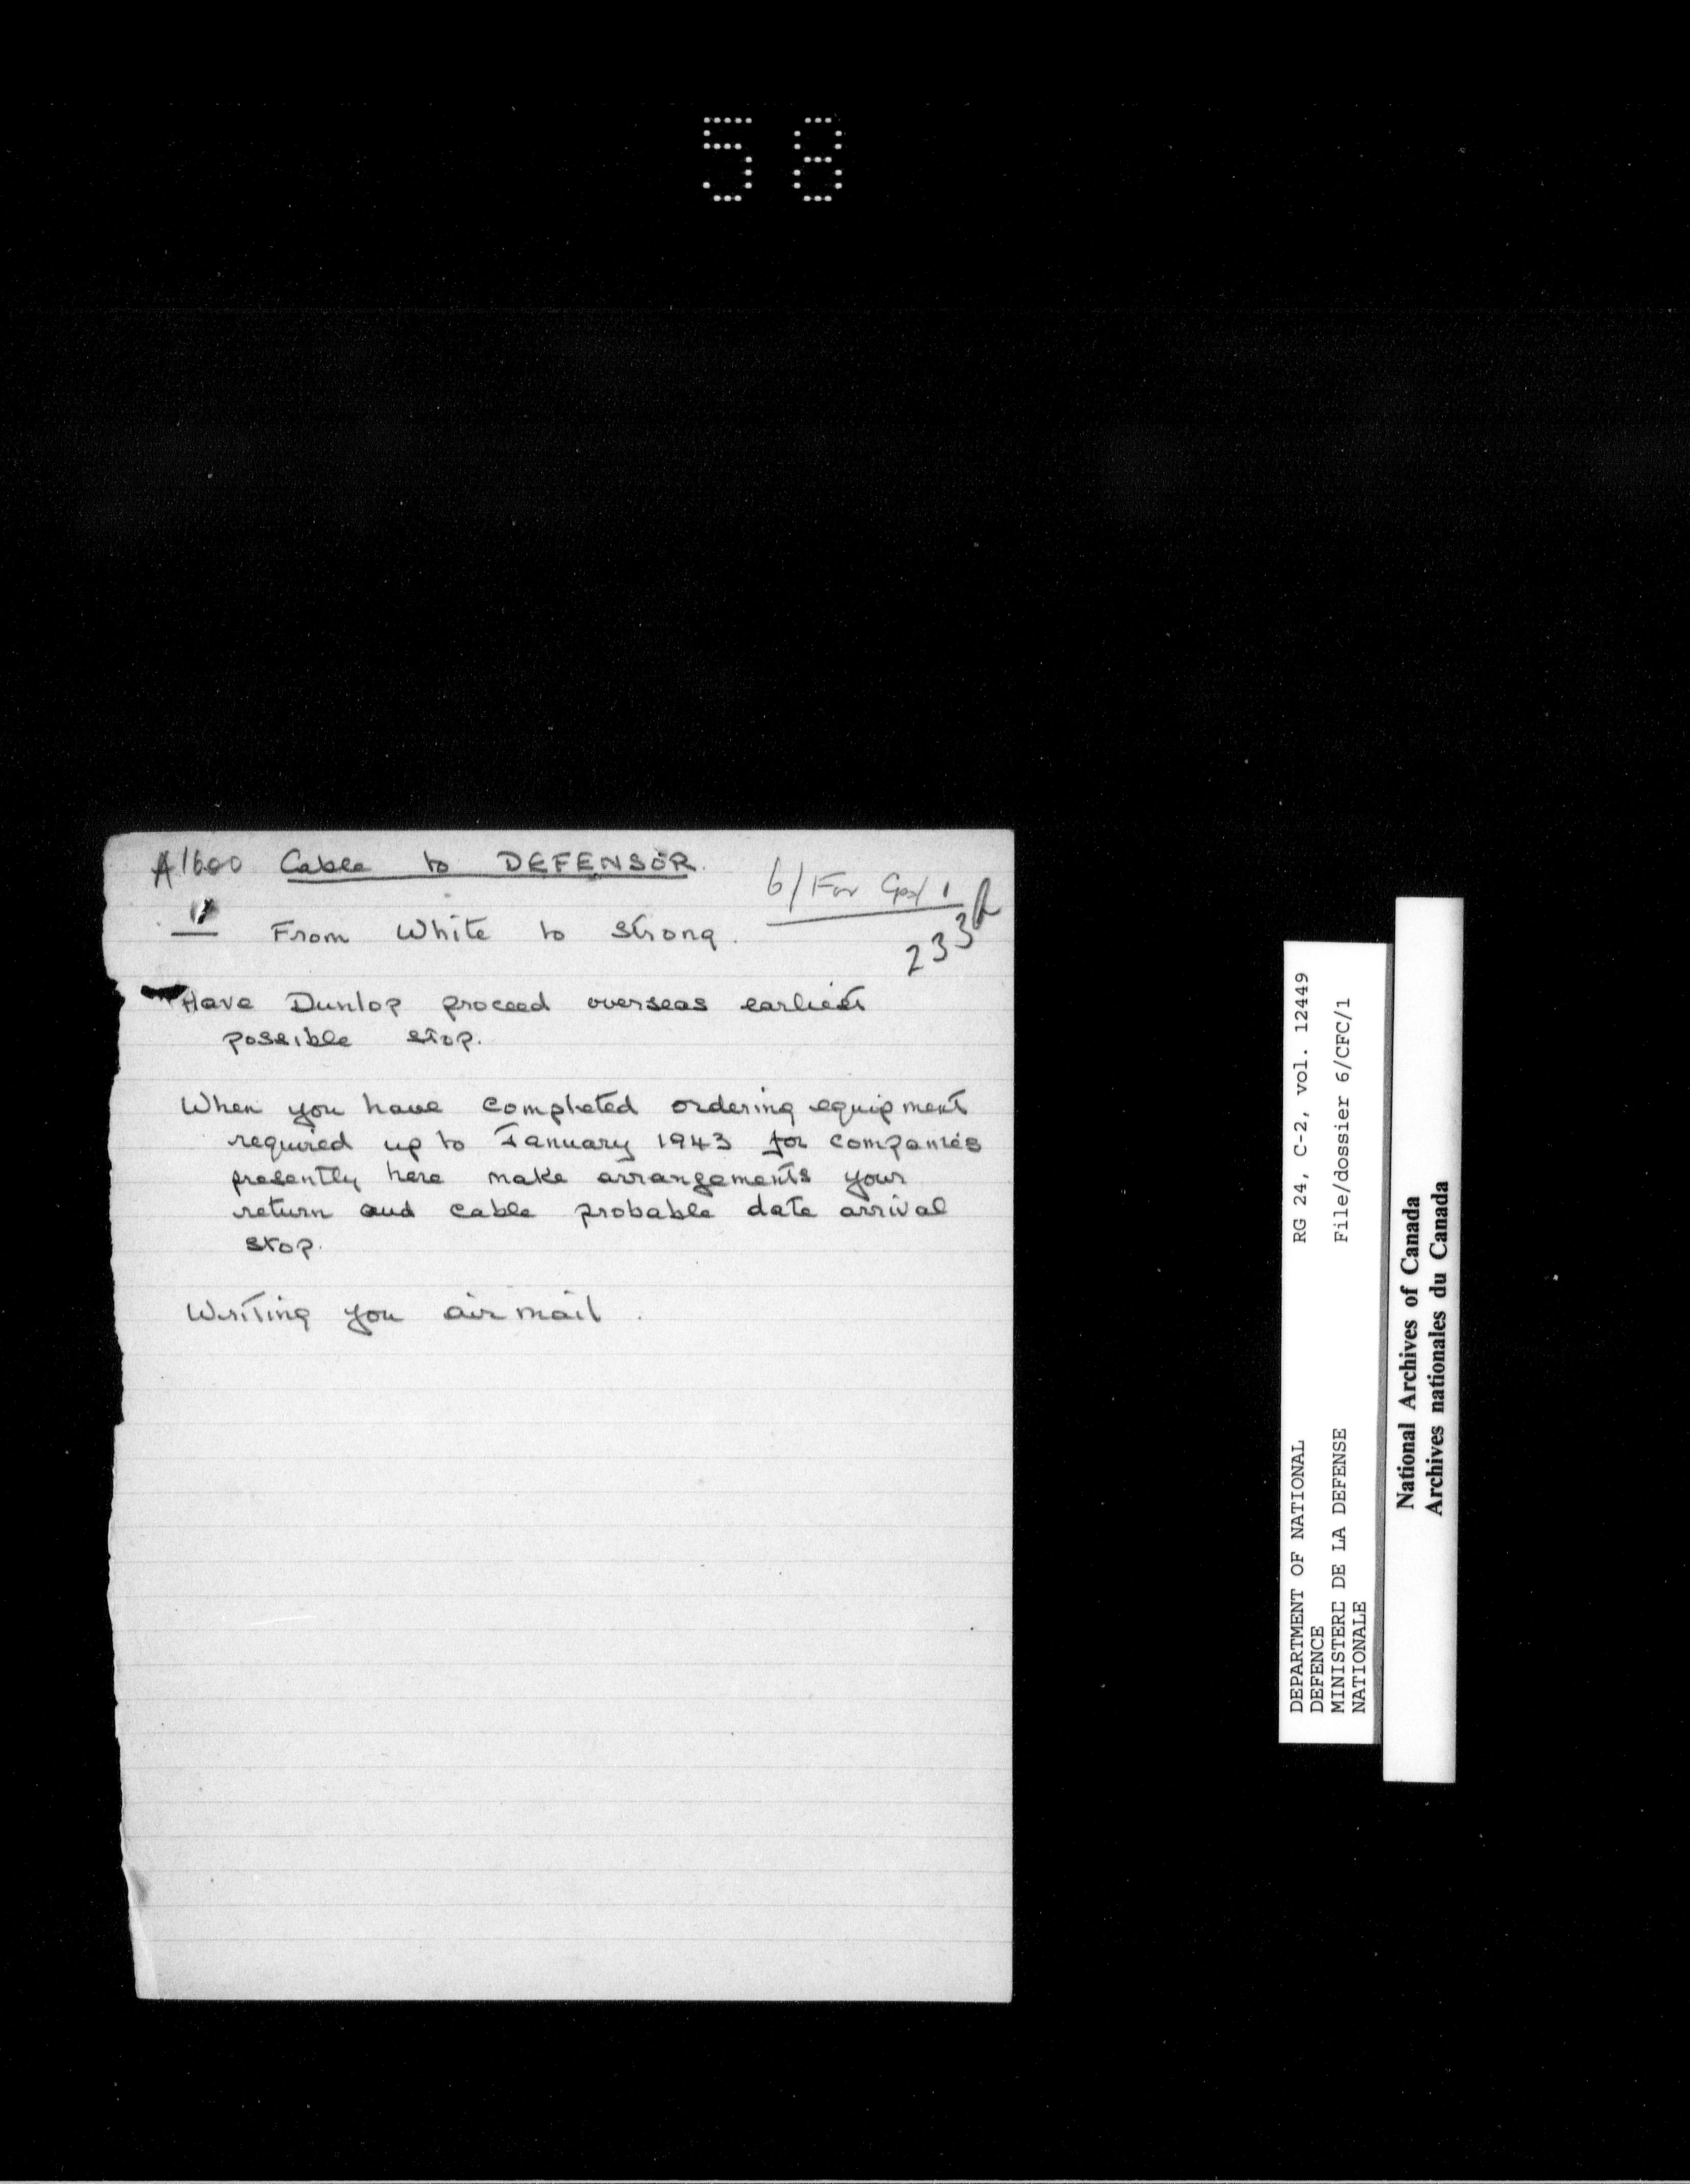 58
A1600 Cable to DEFENSOR.
6/For Gps/1
233
From White to Strong.
Have Dunlop proceed overseas earliest
possible stop.
When you have completed ordering equipment
required up to January 1943 for companies
presently here make arrangements your
return and cable probable date arrival
stop.
Writing you air mail.
RG 24, C-2, vol. 12449
File/dossier 6/CFC/1
DEPARTMENT OF NATIONAL
DEFENCE
MINISTERE DE LA DEFENSE
NATIONALE
National Archives of Canada
Archives nationales du Canada